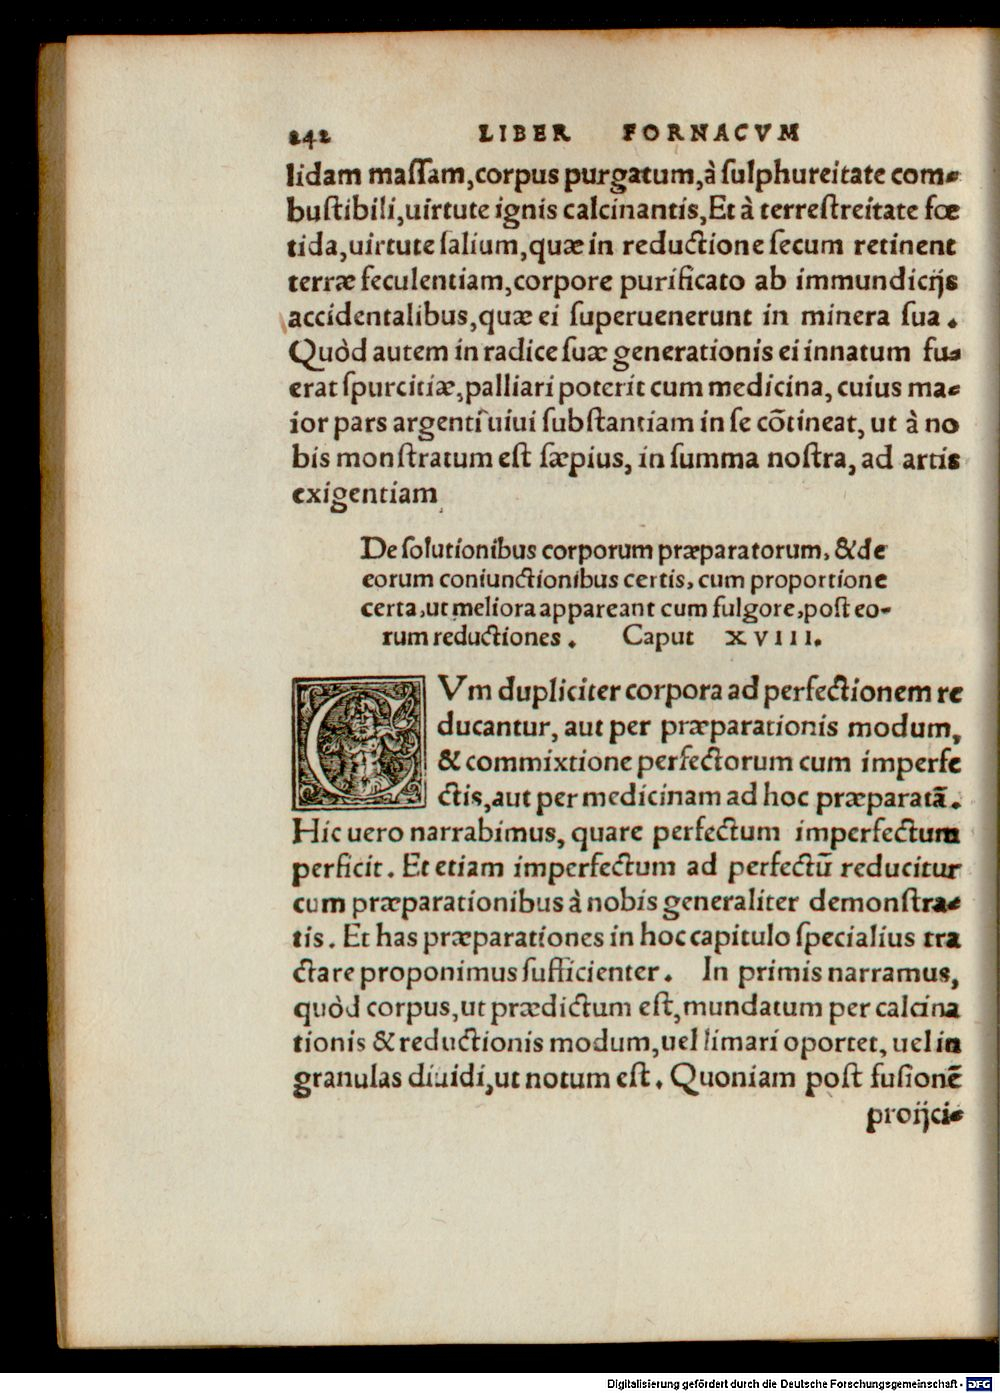 242 LIBER FORNACVM
lidam maſſam,corpus purgatum,à ſulphureitate com-
buſtibili,uirtute ignis calcinantis,Et à terreſtreitate fœ
tida,uirtute ſalium,quæ in reductione ſecum retinent
terræ feculentiam,corpore purificato ab immundicijs
accidentalibus,quæ ei ſuperuenerunt in minera ſua.
Quòd autem in radice ſuæ generationis ei innatum fu-
erat ſpurcitiæ,palliari poterit cum medicina, cuius ma-
ior pars argenti uiui ſubſtantiam in ſe cõtineat, ut à no
bis monſtratum eſt ſæpius, in ſumma noſtra, ad artis
exigentiam
De ſolutionibus corporum præparatorum, & de
eorum coniunctionibus certis, cum proportione
certa,ut meliora appareant cum fulgore,poſt eo-
rum reductiones. Caput XVIII.
CVm dupliciter corpora ad perfectionem re
ducantur, aut per præparationis modum,
& commixtione perfectorum cum imperfe
ctis,aut per medicinam ad hoc præparatã.
Hic uero narrabimus, quare perfectum imperfectum
perficit. Et etiam imperfectum ad perfectũ reducitur
cum præparationibus à nobis generaliter demonſtra-
tis. Et has præparationes in hoc capitulo ſpecialius tra
ctare proponimus ſufficienter. In primis narramus,
quòd corpus,ut prædictum eſt,mundatum per calcina
tionis & reductionis modum,uel limari oportet, uel in
granulas diuidi,ut notum eſt. Quoniam poſt fuſionẽ
proijci-
Digitalisierung gefördert durch die Deutsche Forschungsgemeinschaft - DFG